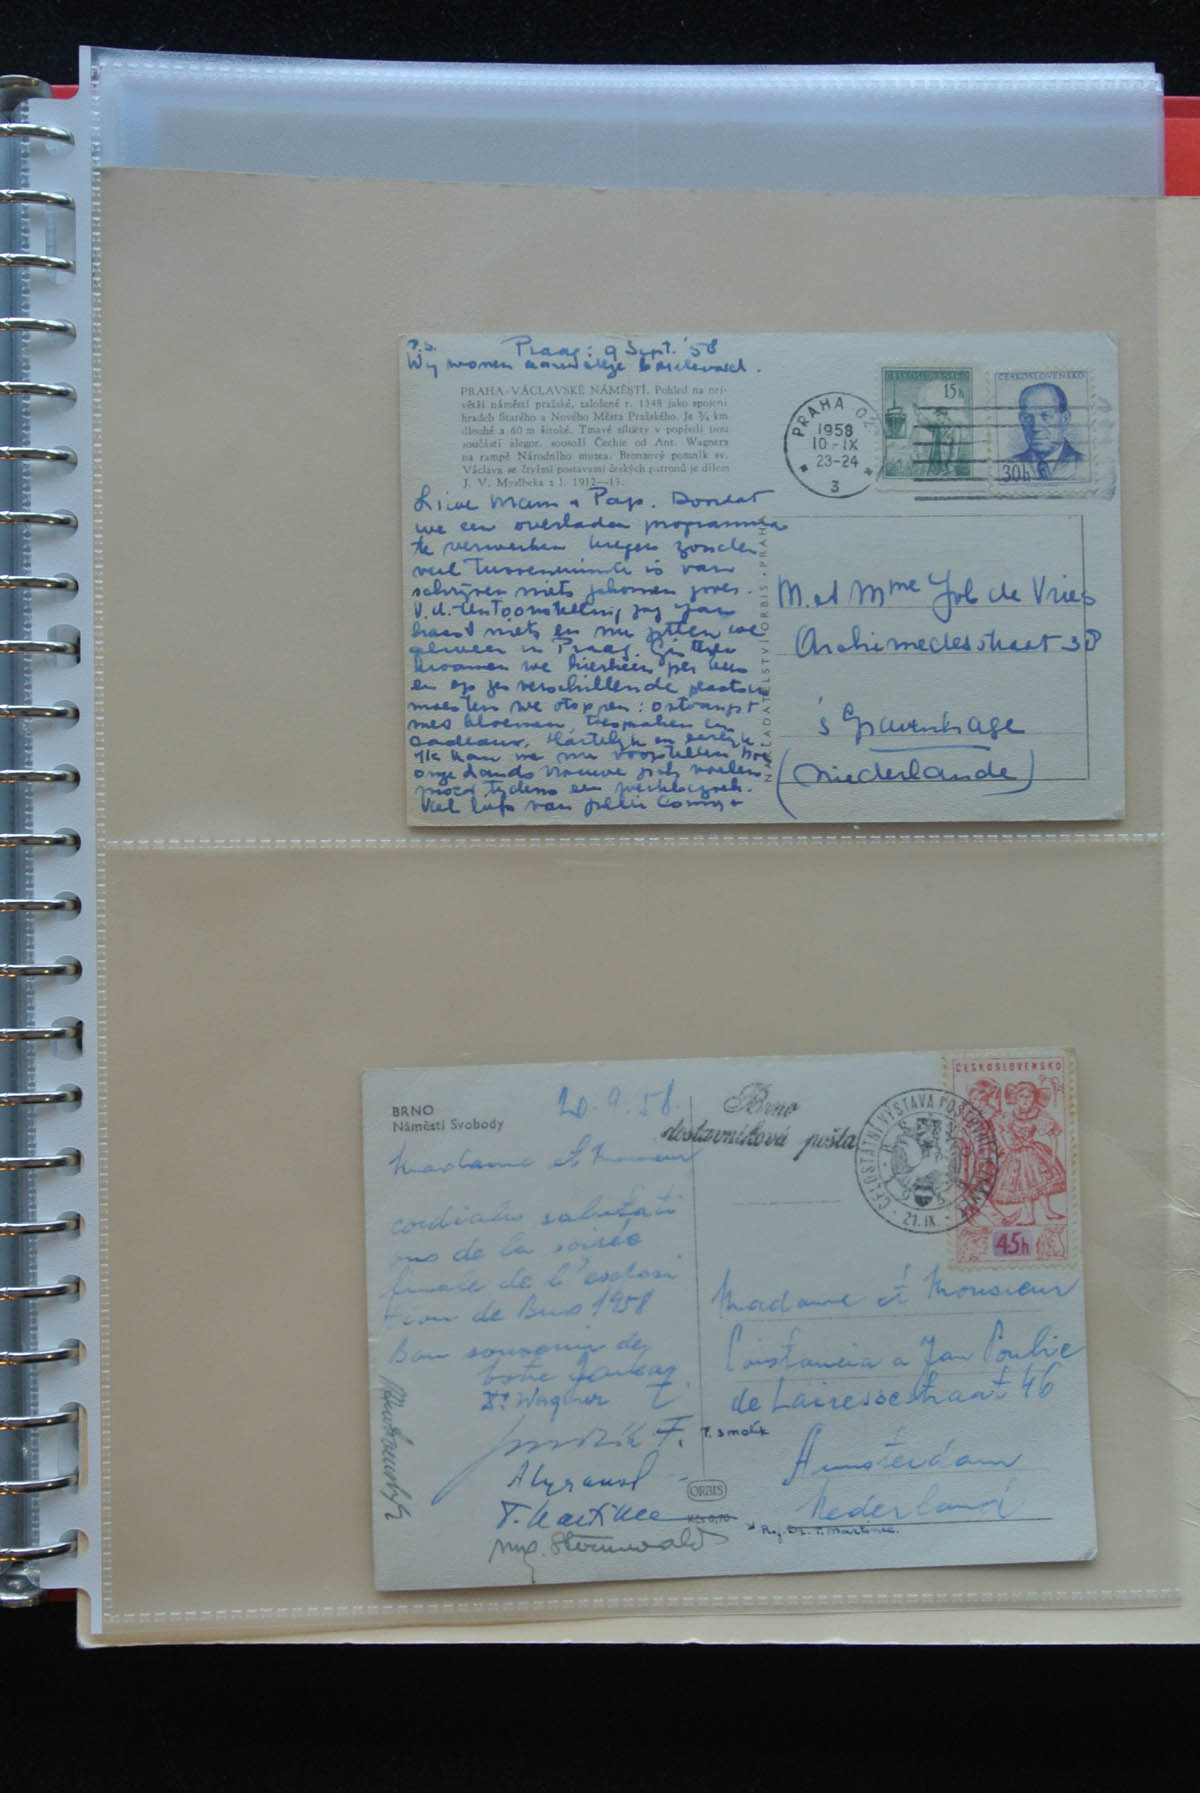 P.S. Praag: 9 Sept. '58
Wij wonen aan deze boulevard.
PRAHA - VÁCLAVSKÉ NÁMĚSTÍ. Pohled na nej-
větší náměstí pražské, založené r. 1348 jako spojení
hradeb Starého a Nového Města Pražského. Je ¾ km
dlouhé a 60 m široké. Tmavé siluety v popředí jsou
součástí alegor. sousoší Čechie od Ant. Wagnera
na rampě Národního musea. Bronzový pomník sv.
Václava se čtyřmi postavami českých patronů je dílem
J. V. Myslbeka z l. 1912—13.
Lieve Mam & Pap. Doordat
we een overladen programma
te verwerken kregen zonder
veel tussenruimte is van
schrijven niets gekomen
V.d. tentoonstelling zag Jan
haast niets en nu zitten we
in Praag. Gisteren
kwamen we hierheen per bus
en op zes verschillende plaatsen
moesten we stoppen: ontvangst
met bloemen, toespraken en
cadeaux. Hartelijk en eerlijk
Ik kan me nu voorstellen hoe
onze Lands vrouwe zich voelen
moet tijdens een
Veel liefs van jullie Conny +
ČESKOSLOVENSKO
15h
ČESKOSLOVENSKO
30h
PRAHA 02
1958
10-IX
23-24
3
NAKLADATELSTVÍ ORBIS · PRAHA
M. et Mme Job de Vries
Archimedesstraat 38
's Gravenhage
(Niederlande)
BRNO
Náměstí Svobody
20. 9. 58.
Brno
dostavníková pošta
CELOSTÁTNÍ VÝSTAVA POŠTOVNÍCH ZNÁMEK
21.IX
ČESKOSLOVENSKO
45h
Madame et Monsieur
cordiales salutati
ons de la soirée
finale de l'exposi
tion de Brno 1958
Bon souvenir de
votre
Dr Wagner
F.
T. Smolík
T. Martinec
Ing.
* Prof. Dr. T. Martinec.
ORBIS
Kčs 0,70
Madame et Monsieur
Constancia a Jan Poulie
de Lairessestraat 46
Amsterdam
Nederland